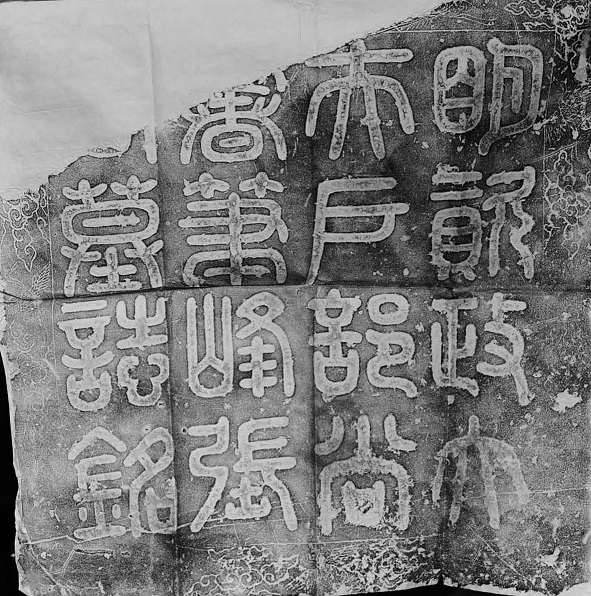 明資政大
夫戶部尚
書華峰張
墓誌銘